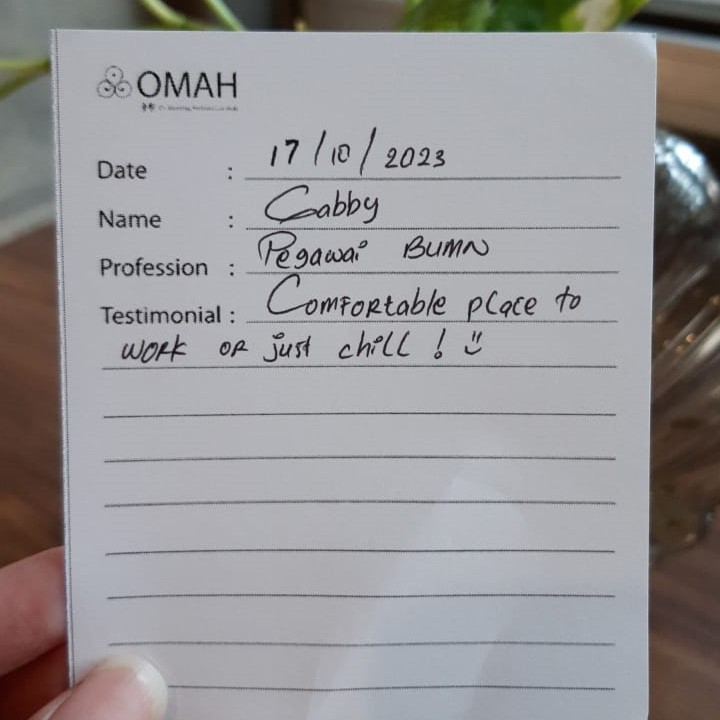 OMAH
Date : 17/10/2023
Name : Gabby
Profession : Pegawai BUMN
Testimonial : Comfortable place to
work or just chill ! :)